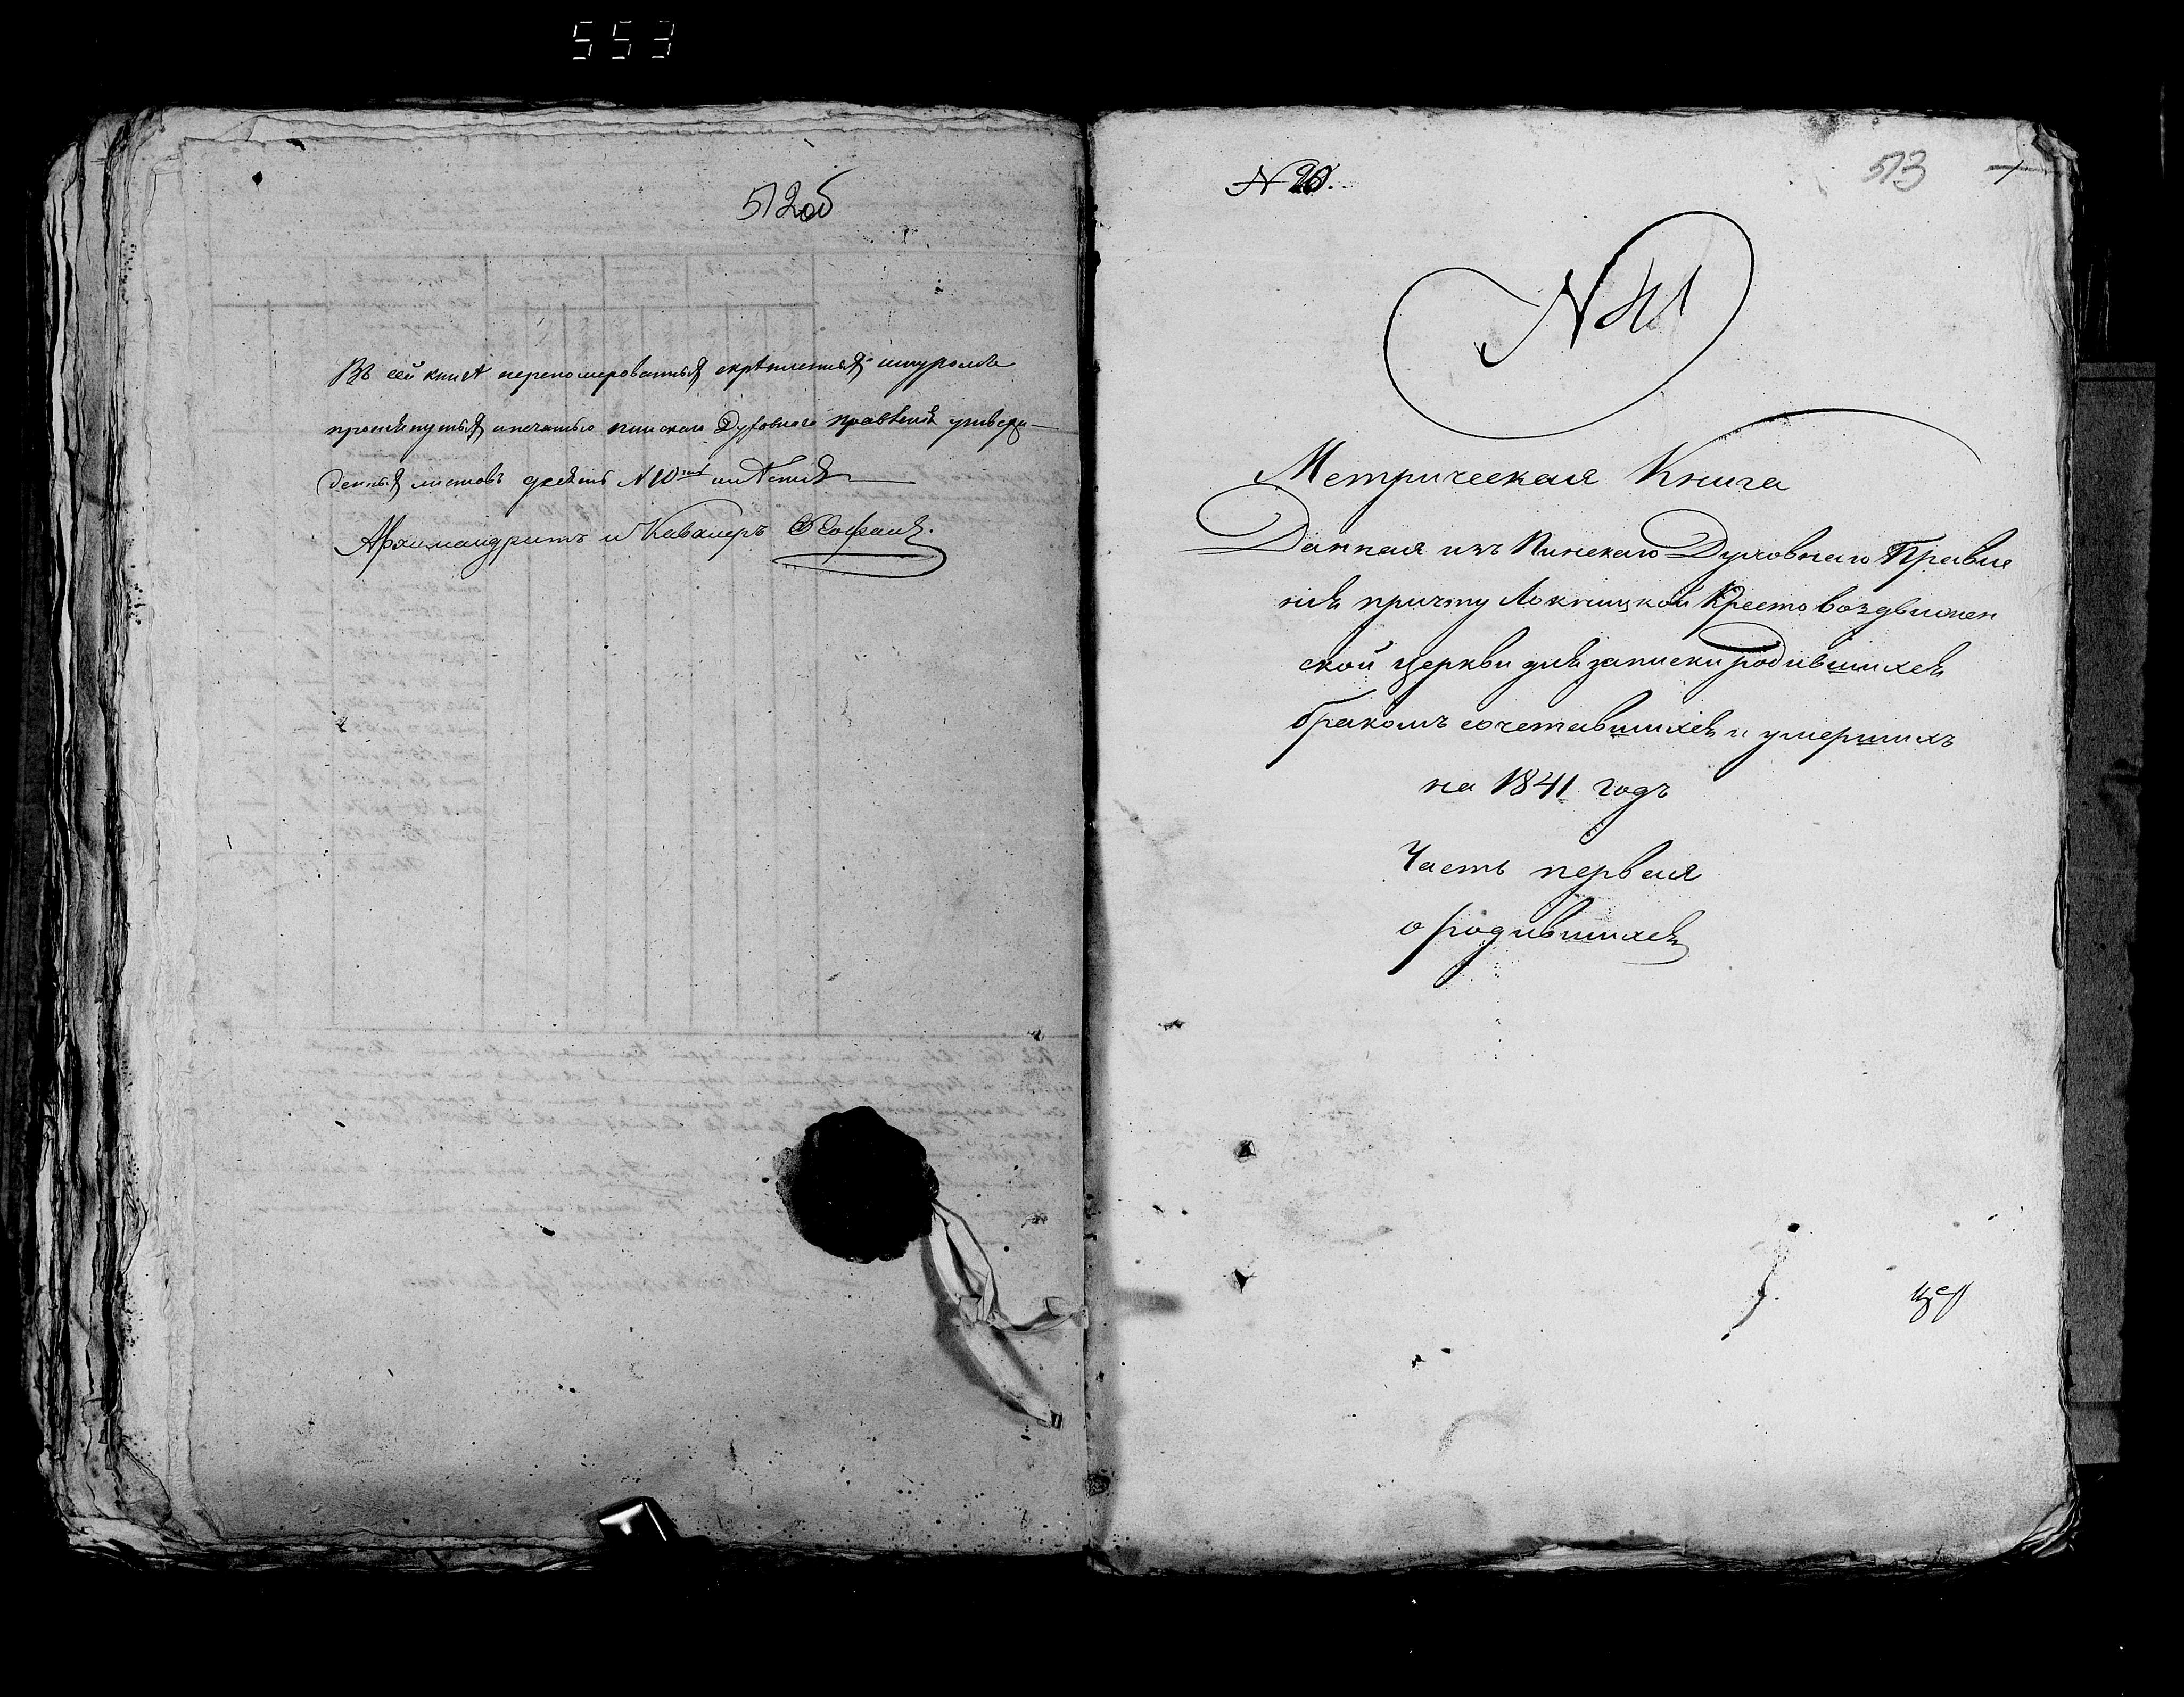 553
512об
Въ сей книгѣ переномерованныхъ скрѣпленныхъ шнуромъ
прошнурныхъ и печатью Пинскаго Духовнаго правленія утверж-
денныхъ листовъ десять N 10
Архимандритъ и Кавалеръ
513
N 20.
N 41
Метрическая Книга
Данная изъ Пинскаго Духовнаго Правле
нія причту Локницкой Кресто воздвижен
ской церкви для записки родившихся
бракомъ сочетавшихся и умершихъ
на 1841 годъ
Часть первая
о родившихся